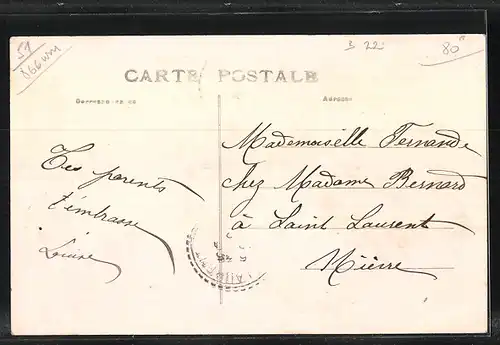 51
3 22
80
CARTE POSTALE
Correspondance
Adresse
Mademoiselle Fernande
chez Madame Bernard
à Saint Laurent
Nièvre
Tes parents
t'embrasse
Louise